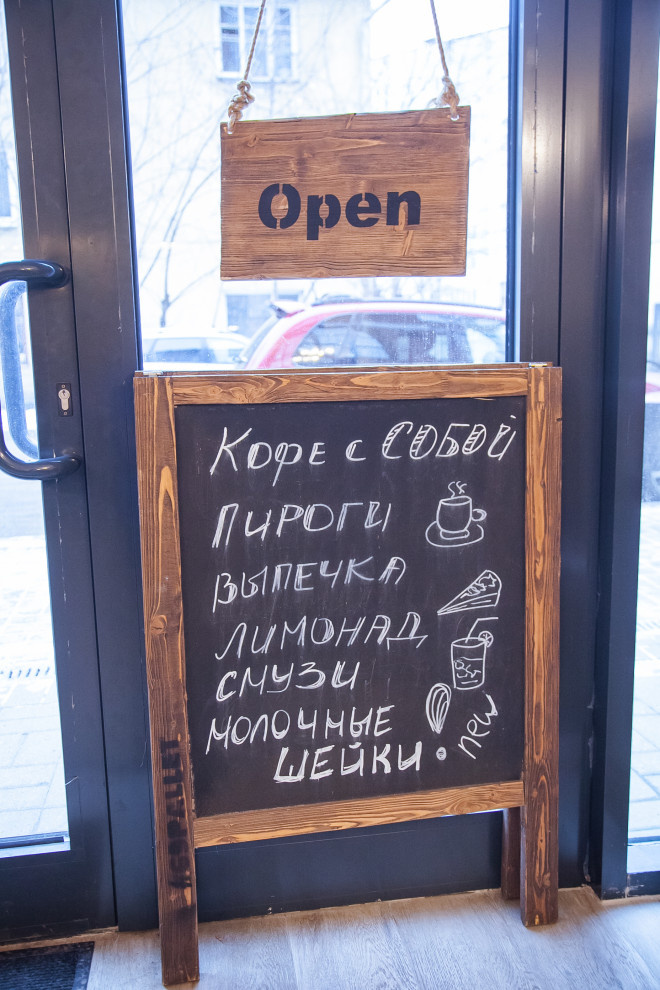 Open
Кофе с СОБОЙ
ПИРОГИ
ВЫПЕЧКА
ЛИМОНАД
СМУЗИ
МОЛОЧНЫЕ
ШЕЙКИ
new